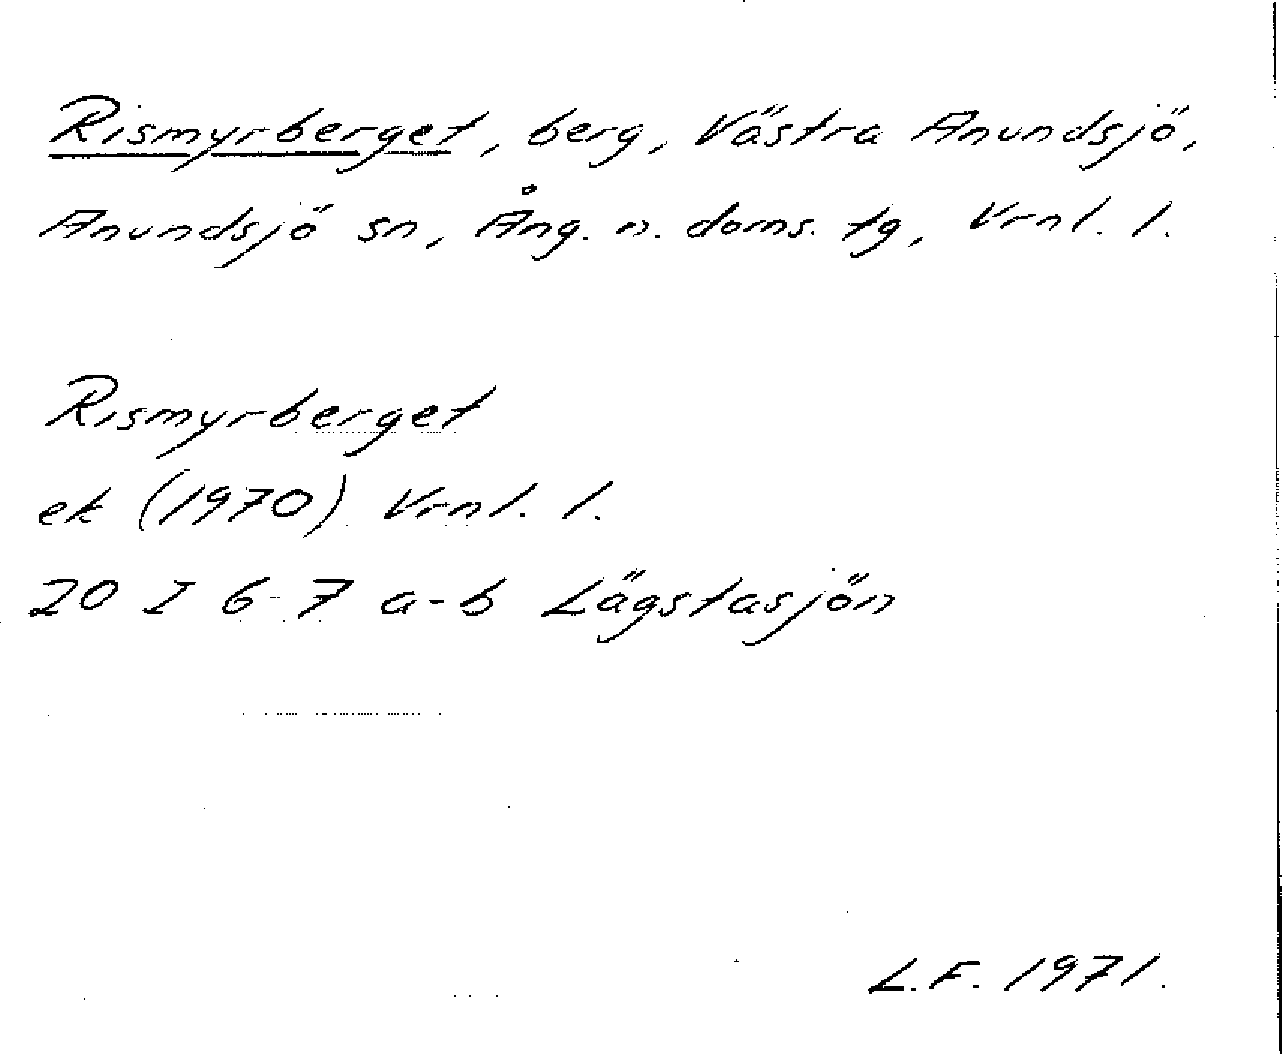 Rismyrberget, berg, Västra Anundsjö,
Anundsjö sn, Ång. n. doms. tg, Vrnl. l.
Rismyrberget
ek (1970) Vrnl. l.
20 I 6-7 a-b Lägstasjön
L.F. 1971.